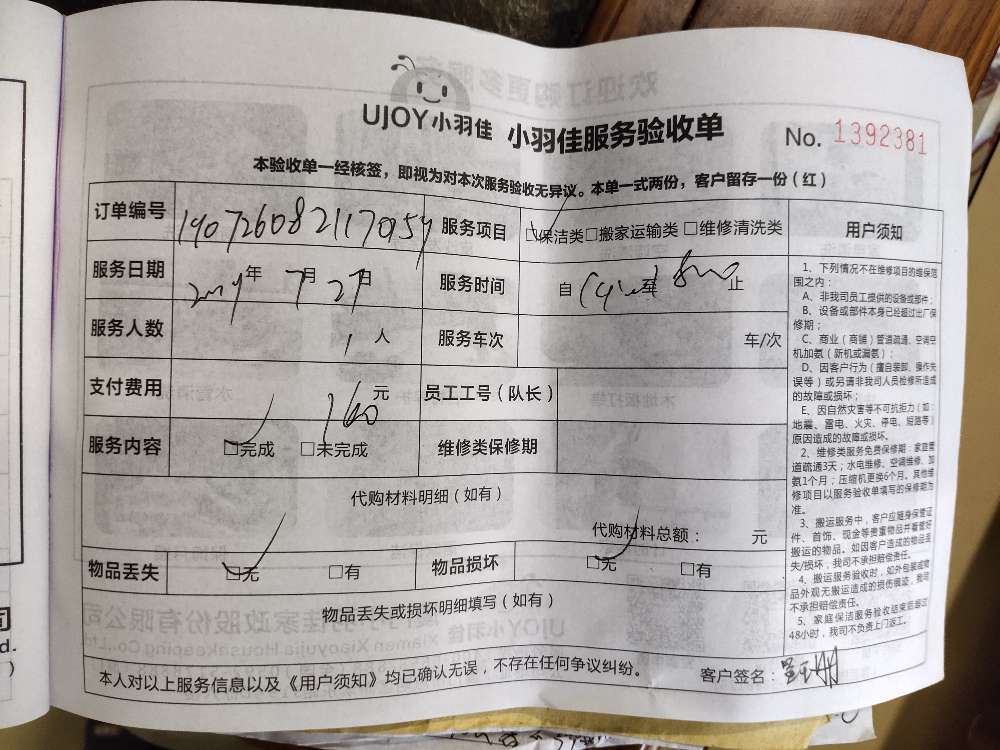 UJOY小羽佳 小羽佳服务验收单 No. 1392381
本验收单一经核签，即视为对本次服务验收无异议。本单一式两份，客户留存一份（红）
订单编号 190726082117059 服务项目 □保洁类□搬家运输类 □维修清洗类
服务日期 2019年 7月 27日 服务时间 自 至 止
服务人数 1人 服务车次 车/次
支付费用 160元 员工工号（队长）
服务内容 □完成 □未完成 维修类保修期
代购材料明细（如有）
代购材料总额： 元
物品丢失 □无 □有 物品损坏 □无 □有
物品丢失或损坏明细填写（如有）
本人对以上服务信息以及《用户须知》均已确认无误，不存在任何争议纠纷。 客户签名：
用户须知
1、下列情况不在维修项目的维保范
围之内：
A、非我司员工提供的设备或部件；
B、设备或部件本身已经超过出厂保
修期；
C、商业（商铺）管道疏通、空调空
机加氨（新机或漏氨）；
D、因客户行为（擅自装卸、操作失
误等）或另请非我司人员检修所造成
的故障或损坏；
E、因自然灾害等不可抗拒力（如：
地震、雷电、火灾、停电、短路等）
原因造成的故障或损坏。
2、维修类服务免费保修期：家庭管
道疏通3天；水电维修、空调维修、加
氨1个月；压缩机更换6个月。其他维
修项目以服务验收单填写的保修期为
准。
3、搬运服务中，客户应随身保管证
件、首饰、现金等贵重物品并看管好
搬运的物品。如因客户造成的物品丢
失/损坏，我司不承担赔偿责任。
4、搬运服务验收时，如外包装或物
品外观无搬运造成的损伤痕迹，我司
不承担赔偿责任。
5、家庭保洁服务验收结束后超过
48小时，我司不负责上门返工。